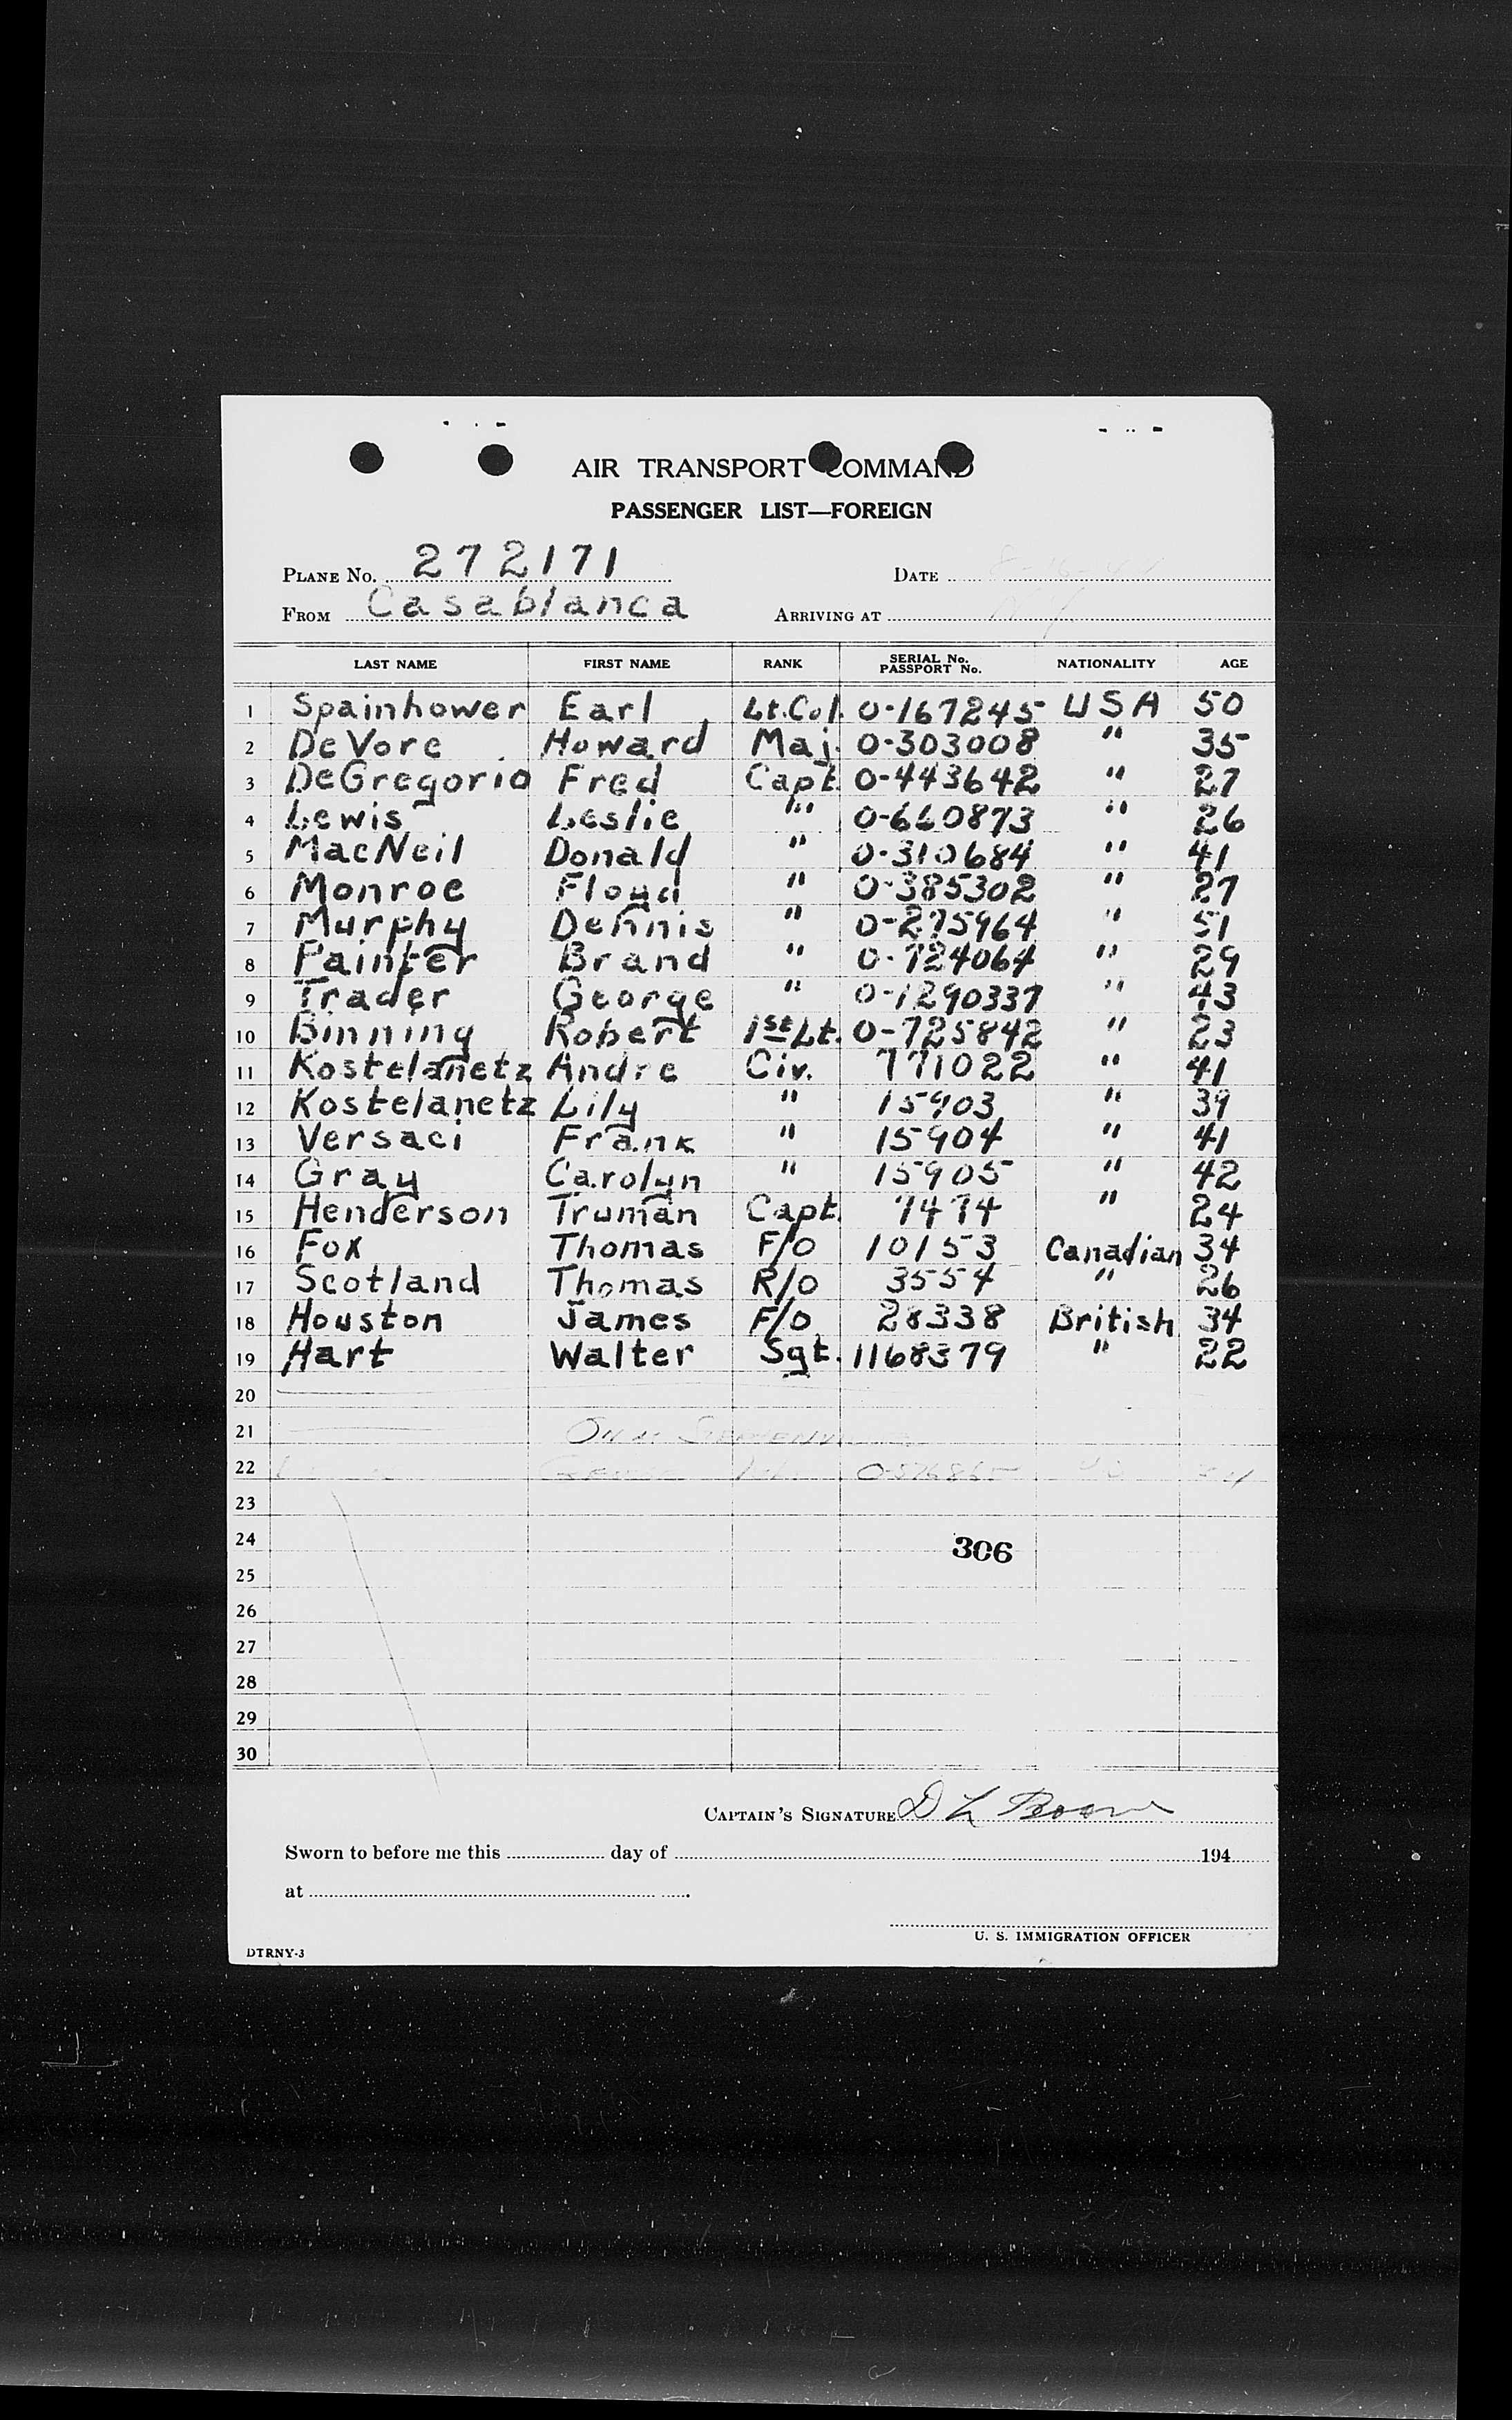 AIR TRANSPORT COMMAND
PASSENGER LIST—FOREIGN
PLANE No. 272171 DATE
FROM Casablanca ARRIVING AT
LAST NAME FIRST NAME RANK SERIAL No. PASSPORT No. NATIONALITY AGE
1 Spainhower Earl Lt.Col. 0-167245 USA 50
2 DeVore Howard Maj. 0-303008 " 35
3 DeGregorio Fred Capt. 0-443642 " 27
4 Lewis Leslie " 0-660873 " 26
5 MacNeil Donald " 0-310684 " 41
6 Monroe Floyd " 0-385302 " 27
7 Murphy Dennis " 0-275964 " 51
8 Painter Brand " 0-724064 " 29
9 Trader George " 0-1290337 " 43
10 Binning Robert 1st Lt. 0-725842 " 23
11 Kostelanetz Andre Civ. 771022 " 41
12 Kostelanetz Lily " 15903 " 39
13 Versaci Frank " 15904 " 41
14 Gray Carolyn " 15905 " 42
15 Henderson Truman Capt. 7474 " 24
16 Fox Thomas F/O 10153 Canadian 34
17 Scotland Thomas R/O 3554 " 26
18 Houston James F/O 28338 British 34
19 Hart Walter Sgt. 1168379 " 22
20
21
22
23
24 306
25
26
27
28
29
30
CAPTAIN'S SIGNATURE D L
Sworn to before me this day of 194
at
U. S. IMMIGRATION OFFICER
DTRNY-3